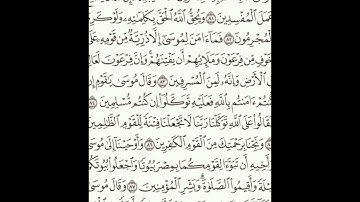 عَمَلَ ٱلْمُفْسِدِينَ ٨١ وَيُحِقُّ ٱللَّهُ ٱلْحَقَّ بِكَلِمَٰتِهِۦ وَلَوْ كَرِهَ
ٱلْمُجْرِمُونَ ٨٢ فَمَآ ءَامَنَ لِمُوسَىٰٓ إِلَّا ذُرِّيَّةٌ مِّن قَوْمِهِۦ عَلَىٰ
خَوْفٍ مِّن فِرْعَوْنَ وَمَلَإِيْهِمْ أَن يَفْتِنَهُمْ ۚ وَإِنَّ فِرْعَوْنَ لَعَالٍ
ٱلْأَرْضِ وَإِنَّهُۥ لَمِنَ ٱلْمُسْرِفِينَ ٨٣ وَقَالَ مُوسَىٰ يَٰقَوْمِ إِن
كُنتُمْ ءَامَنتُم بِٱللَّهِ فَعَلَيْهِ تَوَكَّلُوٓا۟ إِن كُنتُم مُّسْلِمِينَ ٨٤
فَقَالُوا۟ عَلَى ٱللَّهِ تَوَكَّلْنَا رَبَّنَا لَا تَجْعَلْنَا فِتْنَةً لِّلْقَوْمِ ٱلظَّٰلِمِينَ
٨٥ وَنَجِّنَا بِرَحْمَتِكَ مِنَ ٱلْقَوْمِ ٱلْكَٰفِرِينَ ٨٦ وَأَوْحَيْنَآ إِلَىٰ
وَأَخِيهِ أَن تَبَوَّءَا لِقَوْمِكُمَا بِمِصْرَ بُيُوتًا وَٱجْعَلُوا۟ بُيُوتَكُمْ
قِبْلَةً وَأَقِيمُوا۟ ٱلصَّلَوٰةَ ۗ وَبَشِّرِ ٱلْمُؤْمِنِينَ ٨٧ وَقَالَ مُوسَىٰ